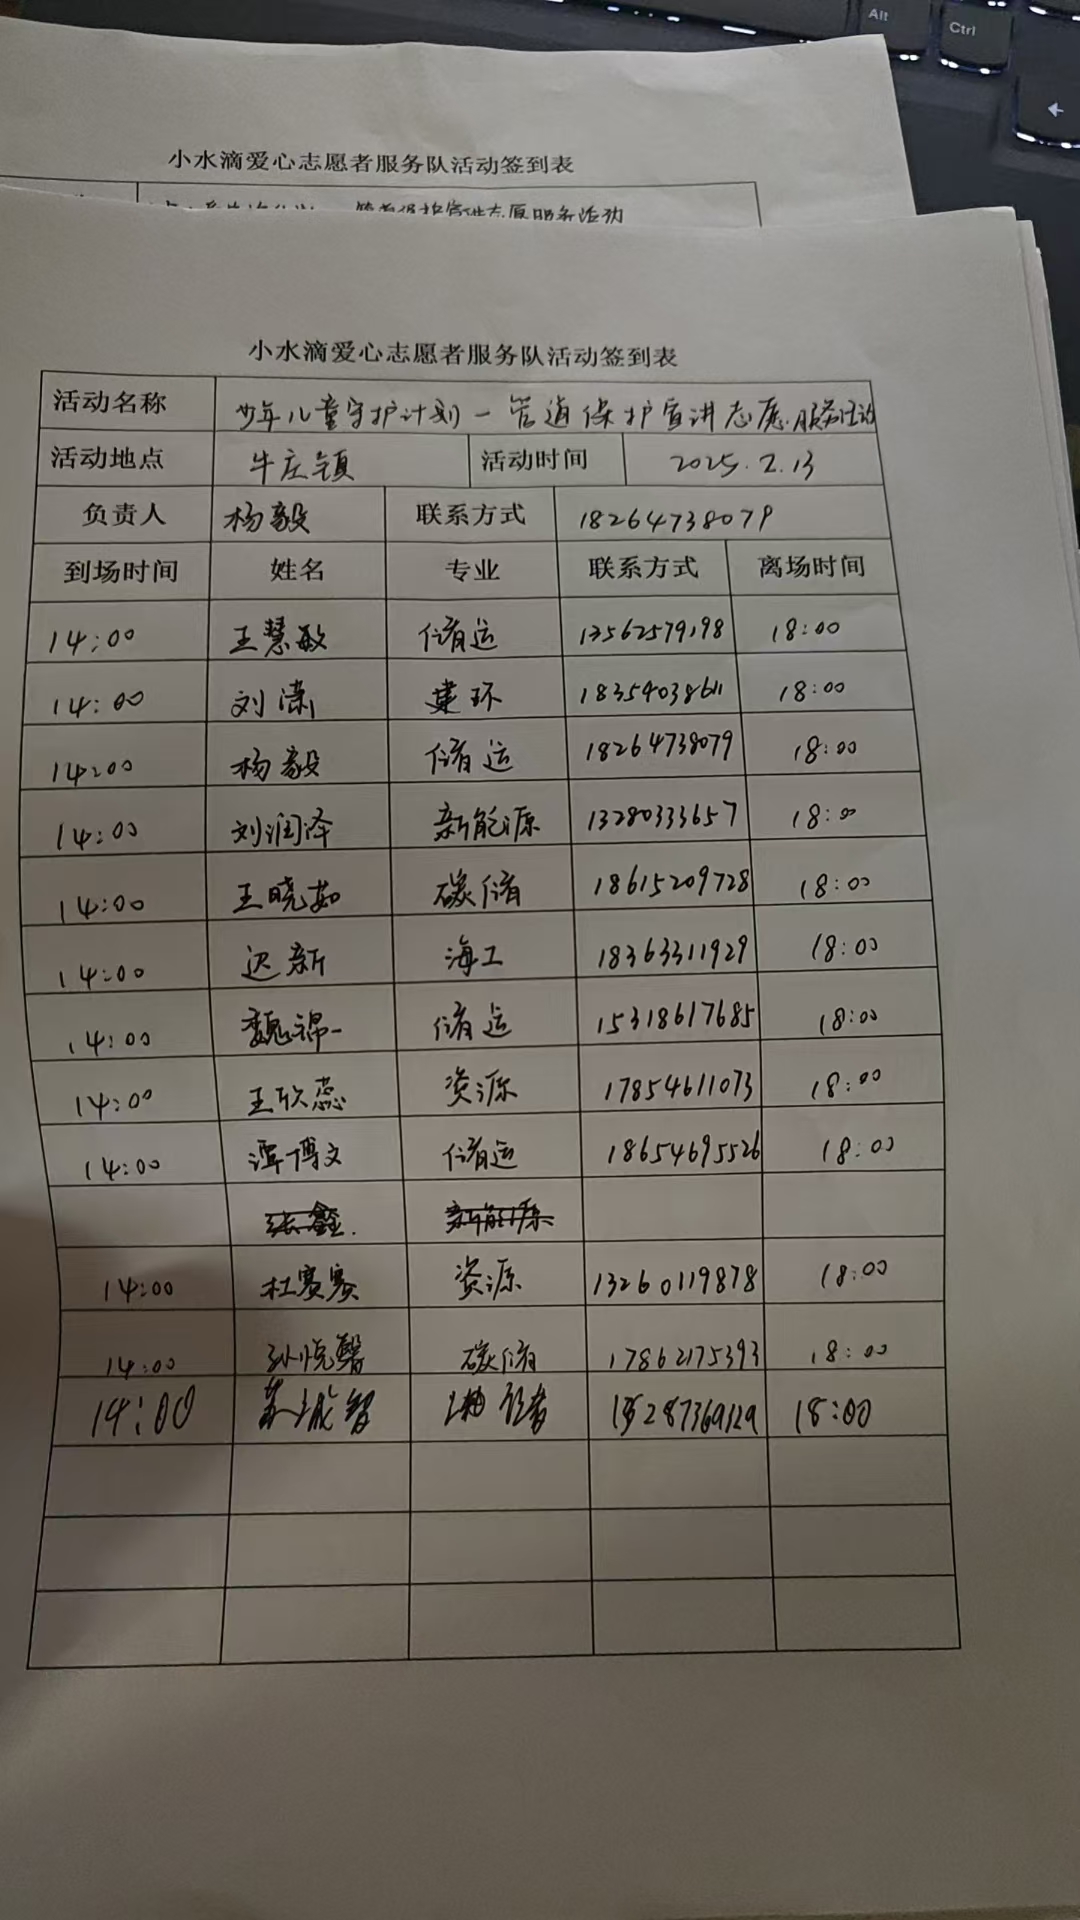 Alt
Ctrl
小水滴爱心志愿者服务队活动签到表
管道保护宣讲志愿服务活动
小水滴爱心志愿者服务队活动签到表
活动名称 少年儿童守护计划一管道保护宣讲志愿服务活动
活动地点 牛庄镇 活动时间 2025.2.13
负责人 杨毅 联系方式 18264738079
到场时间 姓名 专业 联系方式 离场时间
14:00 王慧敏 储运 13562579198 18:00
14:00 刘潇 建环 18354038611 18:00
14:00 杨毅 储运 18264738079 18:00
14:00 刘润泽 新能源 13280333657 18:00
14:00 王晓茹 碳储 18615209728 18:00
14:00 迟新 海工 18363311929 18:00
14:00 魏锦一 储运 15318617685 18:00
14:00 王欣蕊 资源 17854611073 18:00
14:00 谭博文 储运 18654695526 18:00
张鑫. 新能源
14:00 杜赛赛 资源 13260119878 18:00
14:00 孙悦馨 碳储 17862175393 18:00
14:00 智 18:00